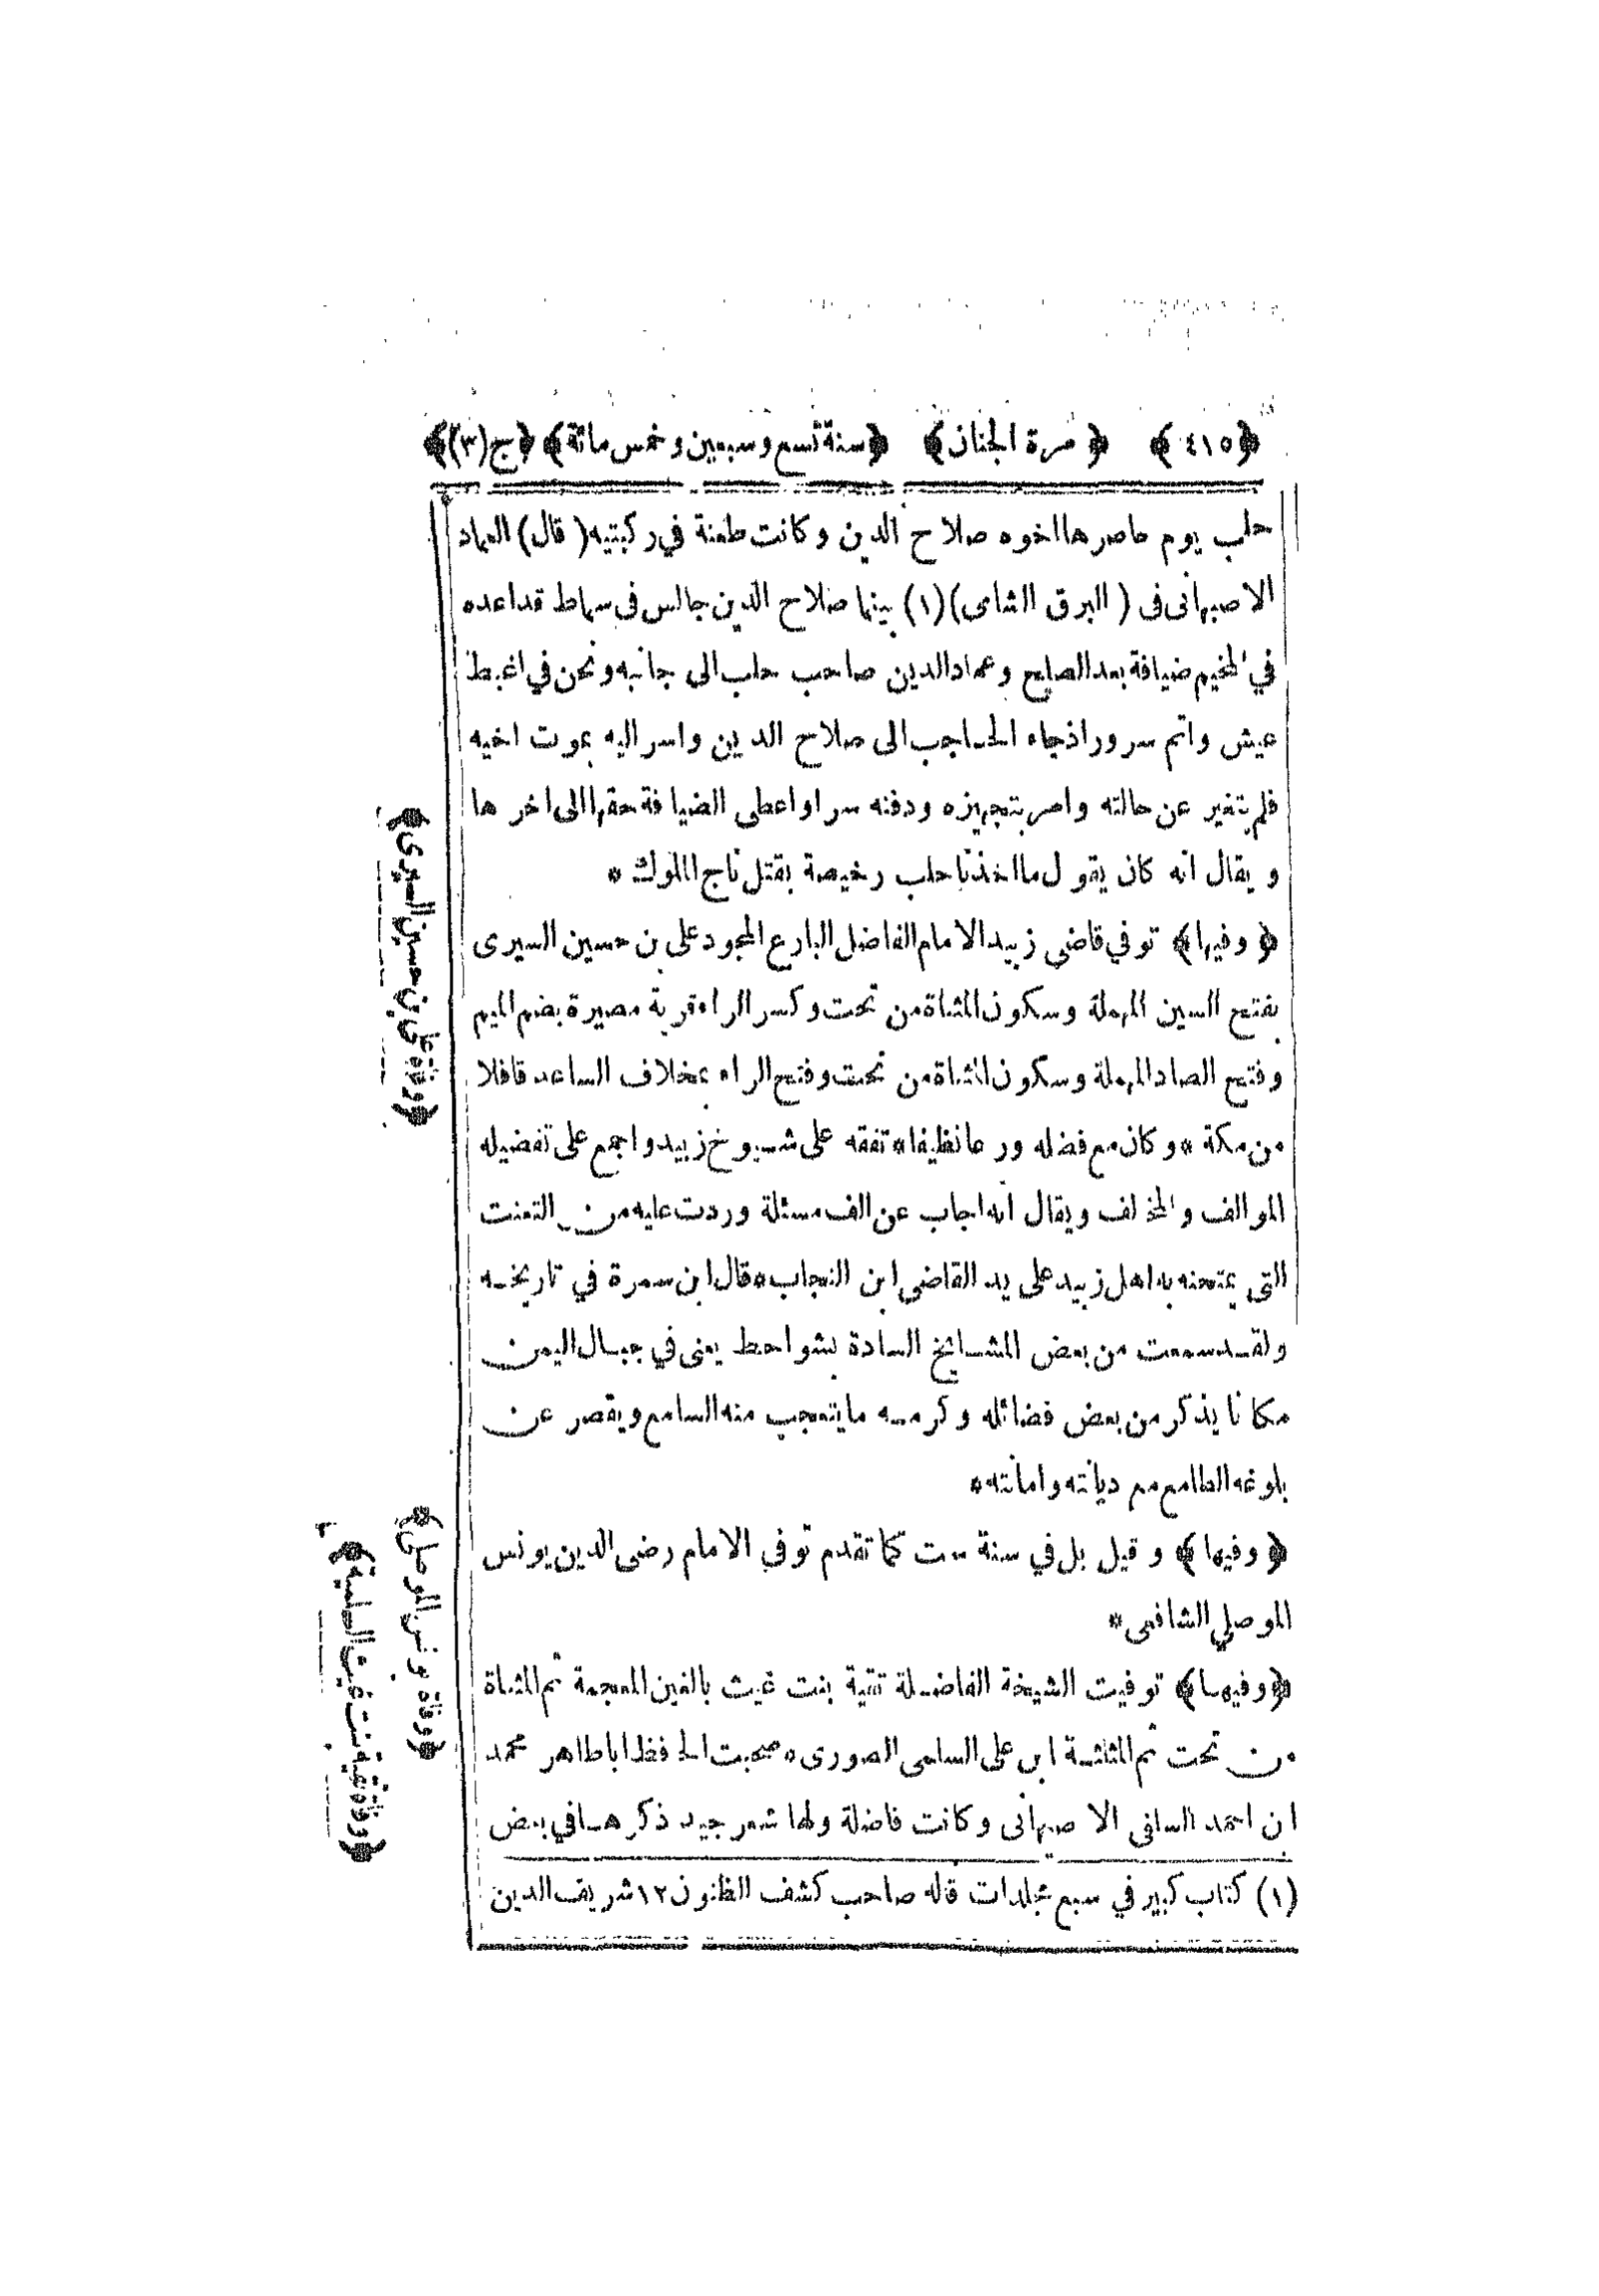 ﴿٤١٥﴾ ﴿مرة الجنان﴾ ﴿سنة تسع وسبعين وخمس مائة﴾ ﴿ج(٣)﴾
حلب يوم حاصرها اخوه صلاح الدين وكانت طعنة في ركبتيه (قال) العماد
الاصبهانى فى (البرق الشامى)(١) بينما صلاح الدين جالس فى سماط قد اعده
في المخيم ضيافة بعد الصلح وعماد الدين صاحب حلب الى جانبه ونحن في اغبط
عيش واتم سرور اذ جاء الحاجب الى صلاح الدين واسر اليه بموت اخيه
فلم يتغير عن حالته وامر بتجهيزه ودفنه سرا واعطى الضيافة حقها الى اخرها
ويقال انه كان يقول ما اخذنا حلب رخيصة بقتل تاج الملوك *
﴿وفيها﴾ توفي قاضى زبيد الامام الفاضل البارع المجود على بن حسين السيرى
بفتح السين المهملة وسكون المثناة من تحت وكسر الراء قرية مصيرة بضم الميم
وفتح الصاد المهملة وسكون المثناة من تحت وفتح الراء بمخلاف الساعد قافلا
من مكة * وكان مع فضله ورعا نظيفا * تفقه على شيوخ زبيد واجمع على تفضيله
الموالف والمخالف ويقال انه اجاب عن الف مسئلة وردت عليه من التعنت
التى يمتحنه به اهل زبيد على يد القاضى ابن النجاب * قال ابن سمرة في تاريخه
ولقد سمعت من بعض المشائخ السادة بشواحط يعنى في جبال اليمن
مكانا يذكر من بعض فضائله وكرمه ما يتعجب منه السامع ويقصر عن
بلوغه الطامع مع ديانته وامانته *
﴿وفيها﴾ وقيل بل في سنة ست كما تقدم توفي الامام رضى الدين يونس
الموصلي الشافعى *
﴿وفيها﴾ توفيت الشيخة الفاضلة تقية بنت غيث بالغين المعجمة ثم المثناة
من تحت ثم المثلثة ابن على السلمى الصورى * صحبت الحافظ ابا طاهر محمد
ان احمد السلفى الاصبهانى وكانت فاضلة ولها شعر جيد ذكرها في بعض
(١) كتاب كبير في سبع مجلدات قاله صاحب كشف الظنون ١٢ شريف الدين
﴿وفاة على بن حسين السيرى﴾
﴿وفاة يونس الموصلى﴾
﴿وفاة تقية بنت غيث السلمية﴾